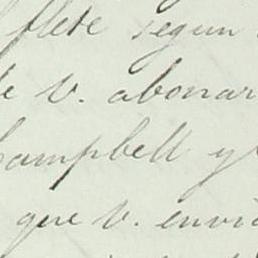 flete segun
e V. abonar
Campbell y
que V. envi